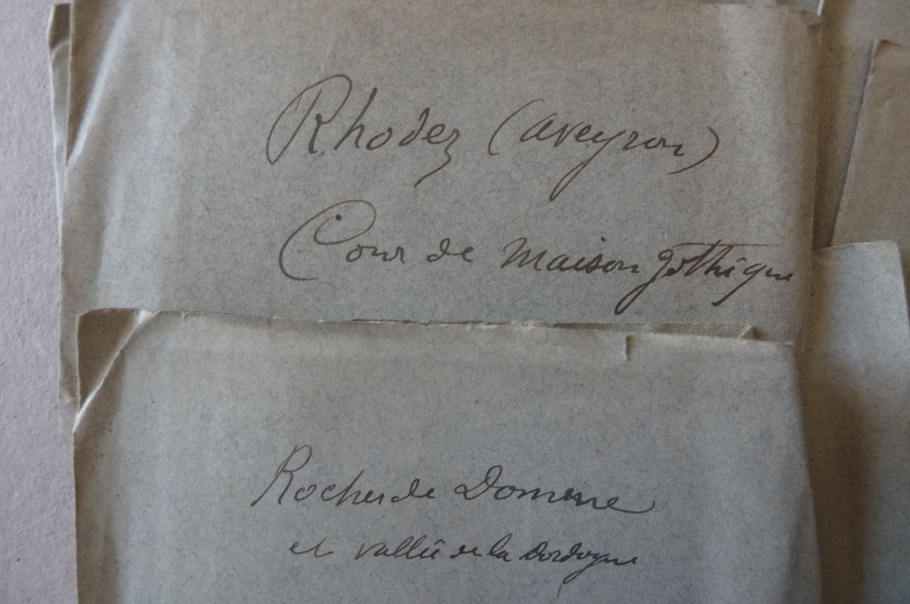 Rhodez (aveyron)
Cour de maison gothique
Rocher de Domme
et vallée de la Dordogne